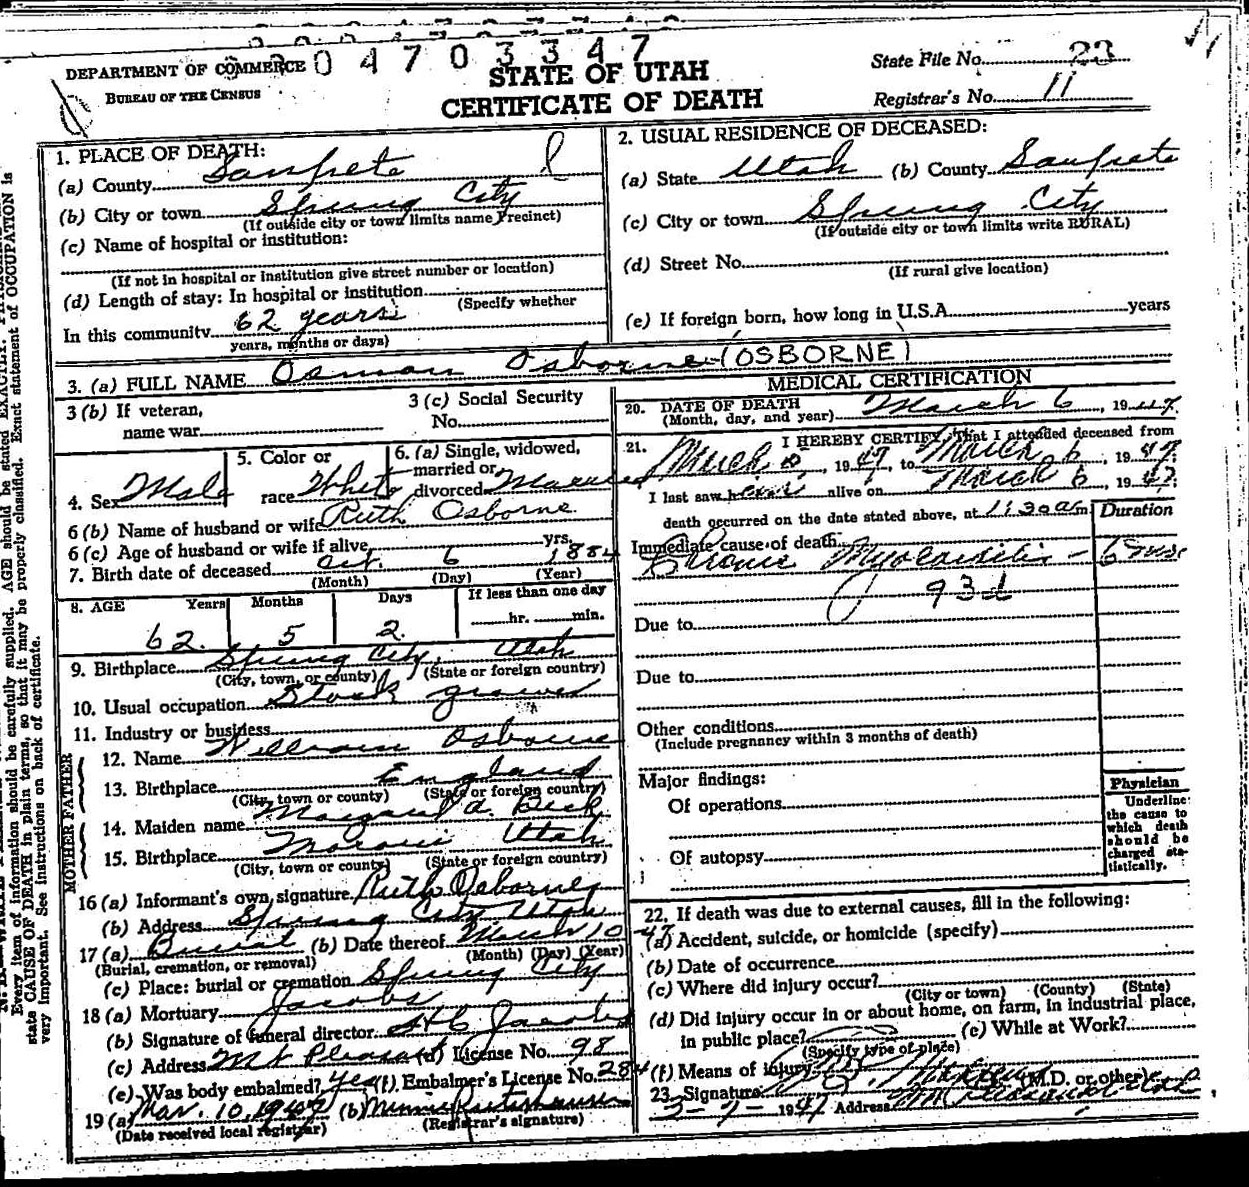 0 4 7 0 3 3 4 7
DEPARTMENT OF COMMERCE
BUREAU OF THE CENSUS
STATE OF UTAH
CERTIFICATE OF DEATH
State File No. 23
Registrar's No. 11
1. PLACE OF DEATH:
(a) County Sanpete
(b) City or town Spring City
(If outside city or town limits name Precinct)
(c) Name of hospital or institution:
(If not in hospital or institution give street number or location)
(d) Length of stay: In hospital or institution
(Specify whether
In this community 62 years
years, months or days)
2. USUAL RESIDENCE OF DECEASED:
(a) State Utah (b) County Sanpete
(c) City or town Spring City
(If outside city or town limits write RURAL)
(d) Street No.
(If rural give location)
(e) If foreign born, how long in U.S.A. years
3. (a) FULL NAME Osmon Osborne (OSBORNE)
3 (b) If veteran,
name war
3 (c) Social Security
No.
4. Sex Male
5. Color or
race White
6. (a) Single, widowed,
married or
divorced Married
6 (b) Name of husband or wife Ruth Osborne
6 (c) Age of husband or wife if alive yrs.
7. Birth date of deceased Oct. 6 1884
(Month) (Day) (Year)
8. AGE Years Months Days If less than one day
62. 5 2. hr. min.
9. Birthplace Spring City, Utah
(City, town, or county) (State or foreign country)
10. Usual occupation Stock grower
11. Industry or business
FATHER
12. Name William Osborne
13. Birthplace England
(City, town or county) (State or foreign country)
MOTHER
14. Maiden name Margaret A. Beck
15. Birthplace Moroni Utah
(City, town or county) (State or foreign country)
16 (a) Informant's own signature Ruth Osborne
(b) Address Spring City Utah
17 (a) Burial (b) Date thereof March 10 47
(Burial, cremation, or removal) (Month) (Day) (Year)
(c) Place: burial or cremation Spring City
18 (a) Mortuary Jacobs
(b) Signature of funeral director H C Jacobs
(c) Address Mt Pleasant (d) License No. 98
(e) Was body embalmed? yes (f) Embalmer's License No. 284
19 (a) Mar. 10, 1947 (b) Minnie
(Date received local registrar) (Registrar's signature)
MEDICAL CERTIFICATION
20. DATE OF DEATH
(Month, day, and year) March 6, 1947.
21. I HEREBY CERTIFY, That I attended deceased from
March, 1947, to March 6, 1947.
I last saw him alive on March 6, 1947;
death occurred on the date stated above, at 11:30 am
Duration
Immediate cause of death:
Chronic Myocarditis - 6 mos
93d
Due to
Due to
Other conditions
(Include pregnancy within 3 months of death)
Major findings:
Of operations
Of autopsy
Physician
Underline
the cause to
which death
should be
charged sta-
tistically.
22. If death was due to external causes, fill in the following:
(a) Accident, suicide, or homicide (specify)
(b) Date of occurrence
(c) Where did injury occur?
(City or town) (County) (State)
(d) Did injury occur in or about home, on farm, in industrial place,
in public place? (e) While at Work?
(Specify type of place)
(f) Means of injury
23. Signature (M.D. or other)
3-7-1947 Address Mt Pleasant Utah
Every item of information should be carefully supplied. AGE should be stated EXACTLY.
state CAUSE OF DEATH in plain terms, so that it may be properly classified. Exact statement of OCCUPATION is
very important. See instructions on back of certificate.